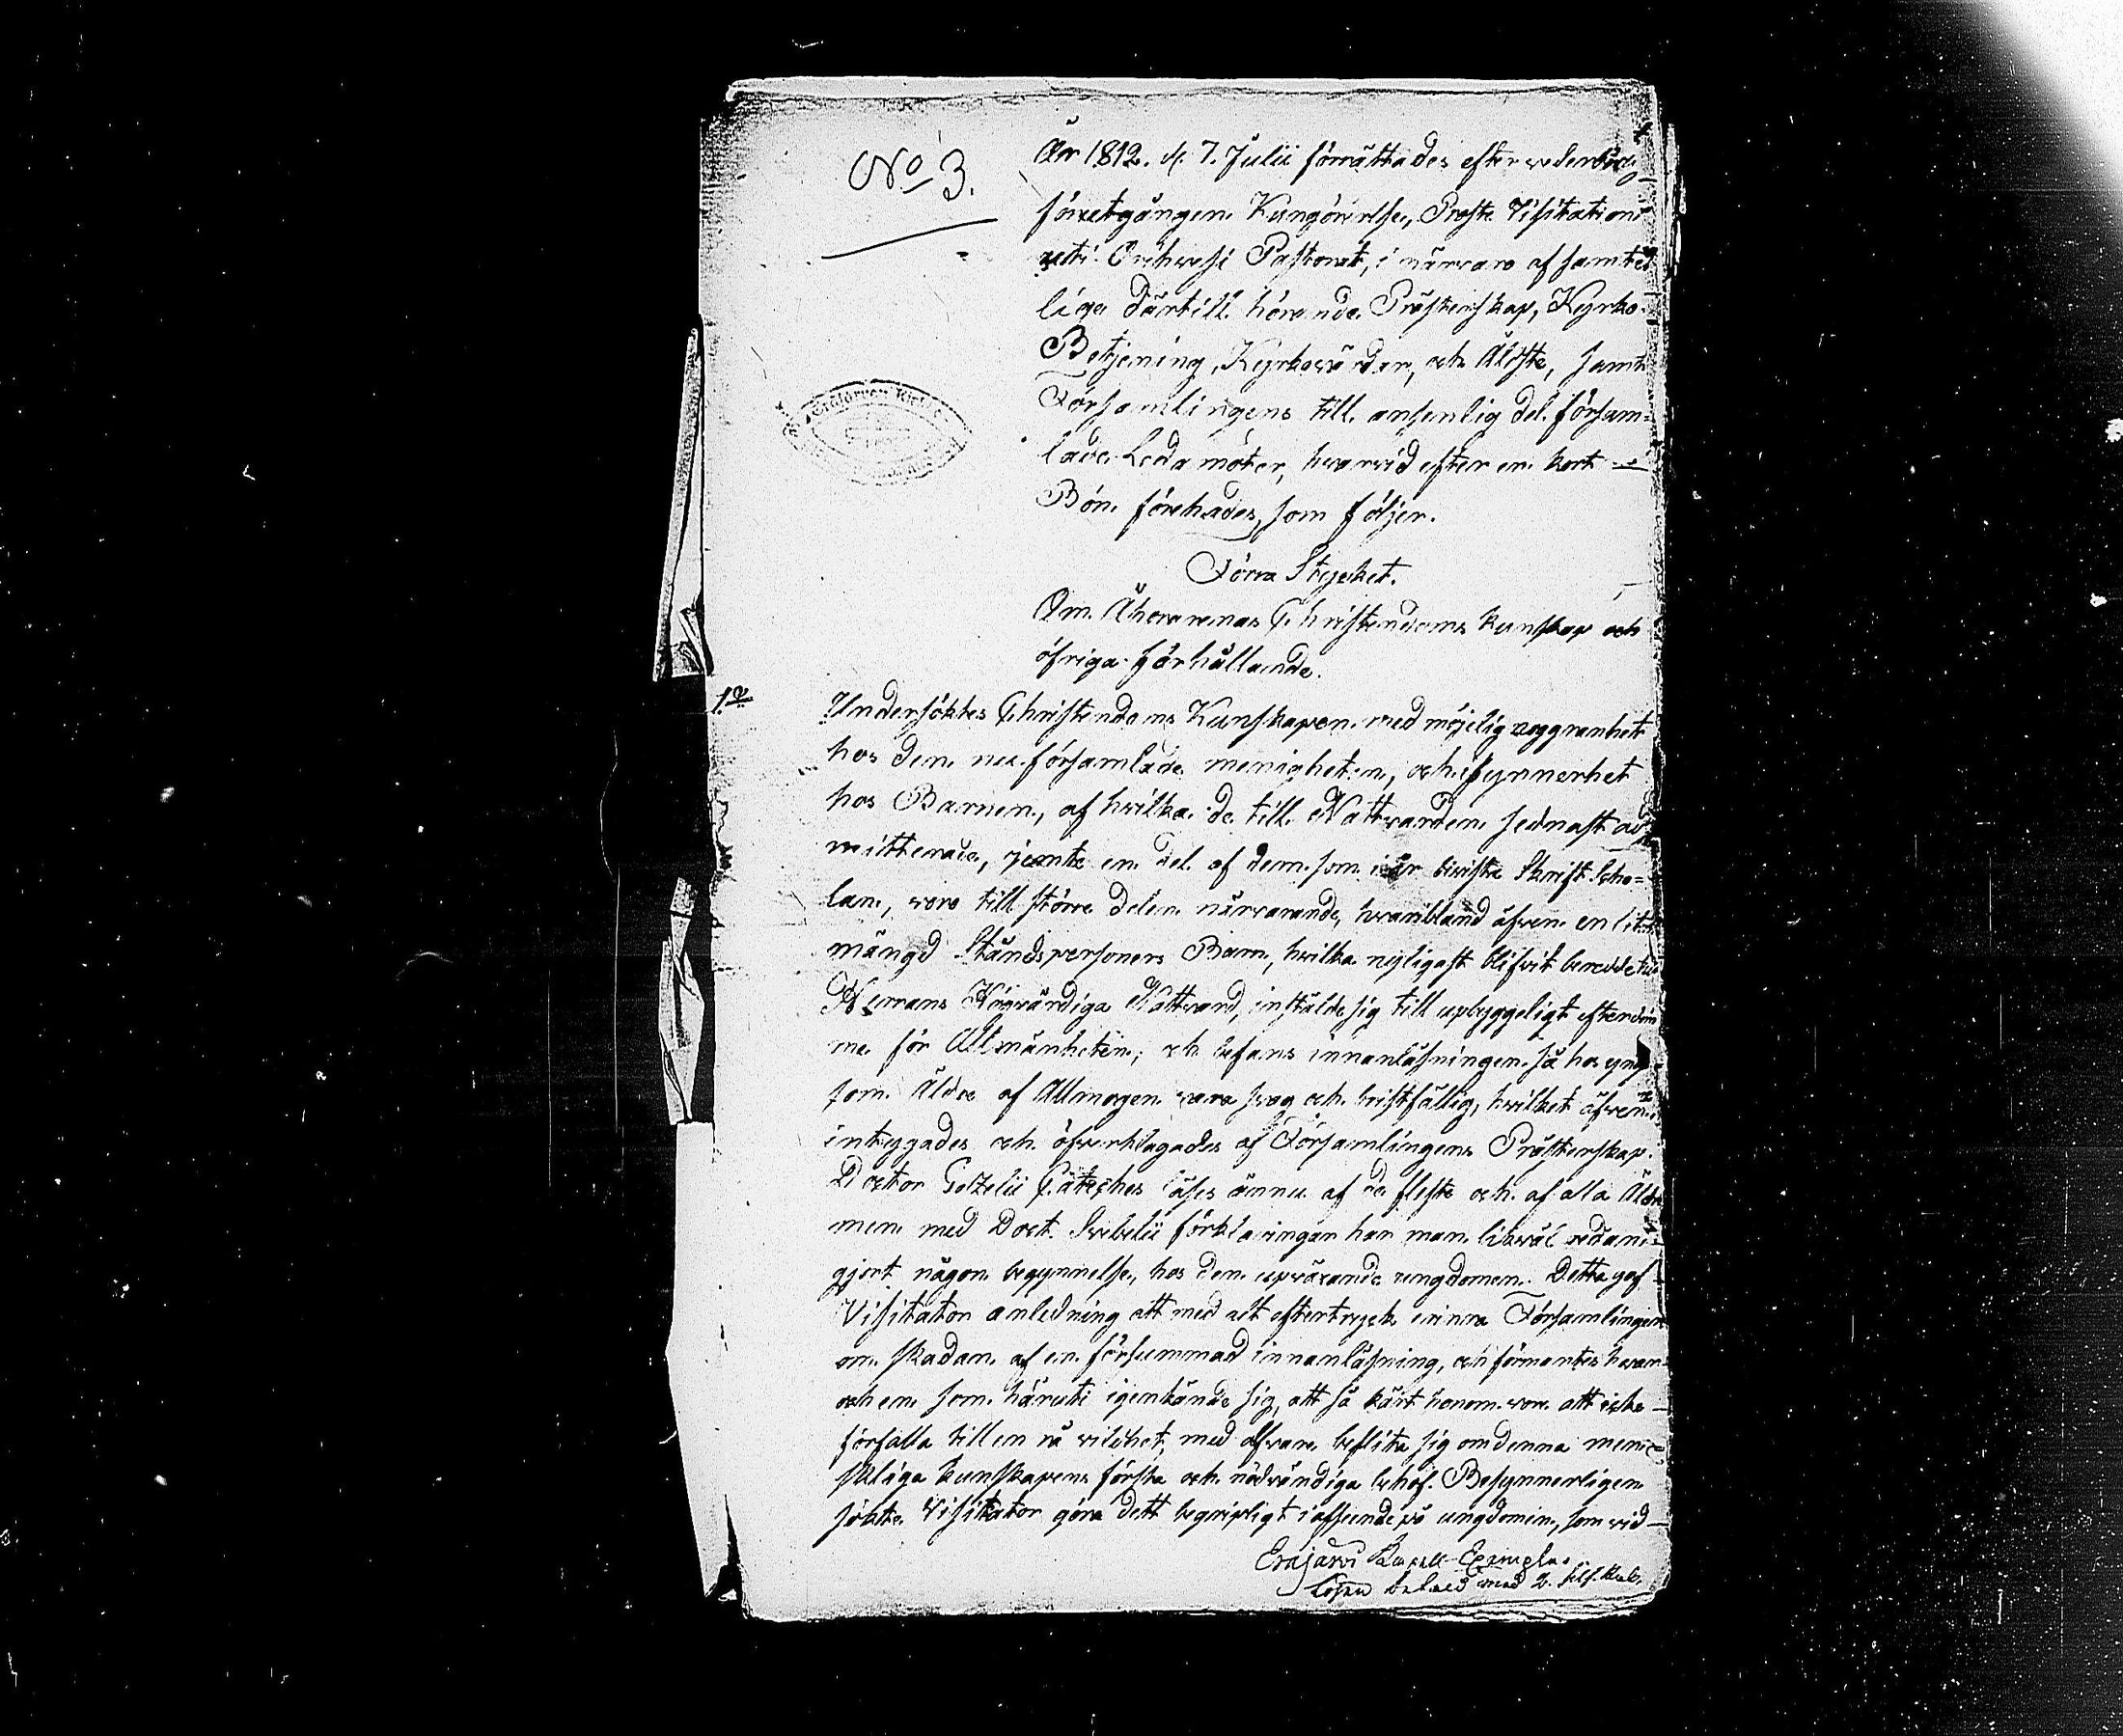 No 3.
År 1812. d. 7. Julii förrättades efter vederbörlig
föregången Kungörelse, Prosta Visitation
uti Orihvesi Pastorat, i närvaro af samte-
liga därtill hörande Prästerskap, Kyrko-
Betjening, Kyrkovärdar, och Äldste, samt
Församlingens till ansenlig del försam=
lade Ledamöter, hvarvid efter en kort
Bön förehades, som följer.
Förra Stycket.
Om Åhörarenas Christendoms kunskap och
öfriga förhållande.
1o
Undersöktes Christendoms Kunskapen med möjelig noggrannhet
hos den nu församlade menigheten, och i synnerhet
hos Barnen, af hvilka de till Nattvarden sednast ad-
mitterade, jemte en del af dem som i år bivista Skrift Scho=
lan, voro till större delen närvarande, hvaribland äfven en liten
mängd Ståndspersoners Barn, hvilka nyligast blifvit beredde till
Herrans Högvärdiga Nattvard, instälde sig till upbyggeligt efterdöm-
me för Allmänheten; och befans innanläsningen så hos yngre
som Äldre af Allmogen vara svag och bristfällig, hvilket äfven
intygades och öfverklagades af Församlingens Prästerskap.
Doctor Gezelii Cateches läses ännu af de fleste och af alla Äldre
men med Doct. Svebelii förklaringar har man likväl redan
gjort någon begynnelse, hos den upväxande ungdomen. Detta gaf
Visitator anledning att med alt eftertryck erinra Församlingen
om skadan af en försummad innanläsning, och förmantes hvar
och en som häruti igenkände sig, att så kärt honom vore att icke
förfalla till en rå vildhet, med alfvar beflita sig om denna men=
skliga kunskapens första och nödvändiga behof. Besynnerligen
sökte Visitator göra dett begripligt i afseende på ungdomen, som vid
Eräjärvi Kapell Exemplar
Lösen betald med 2. silf. Rub.